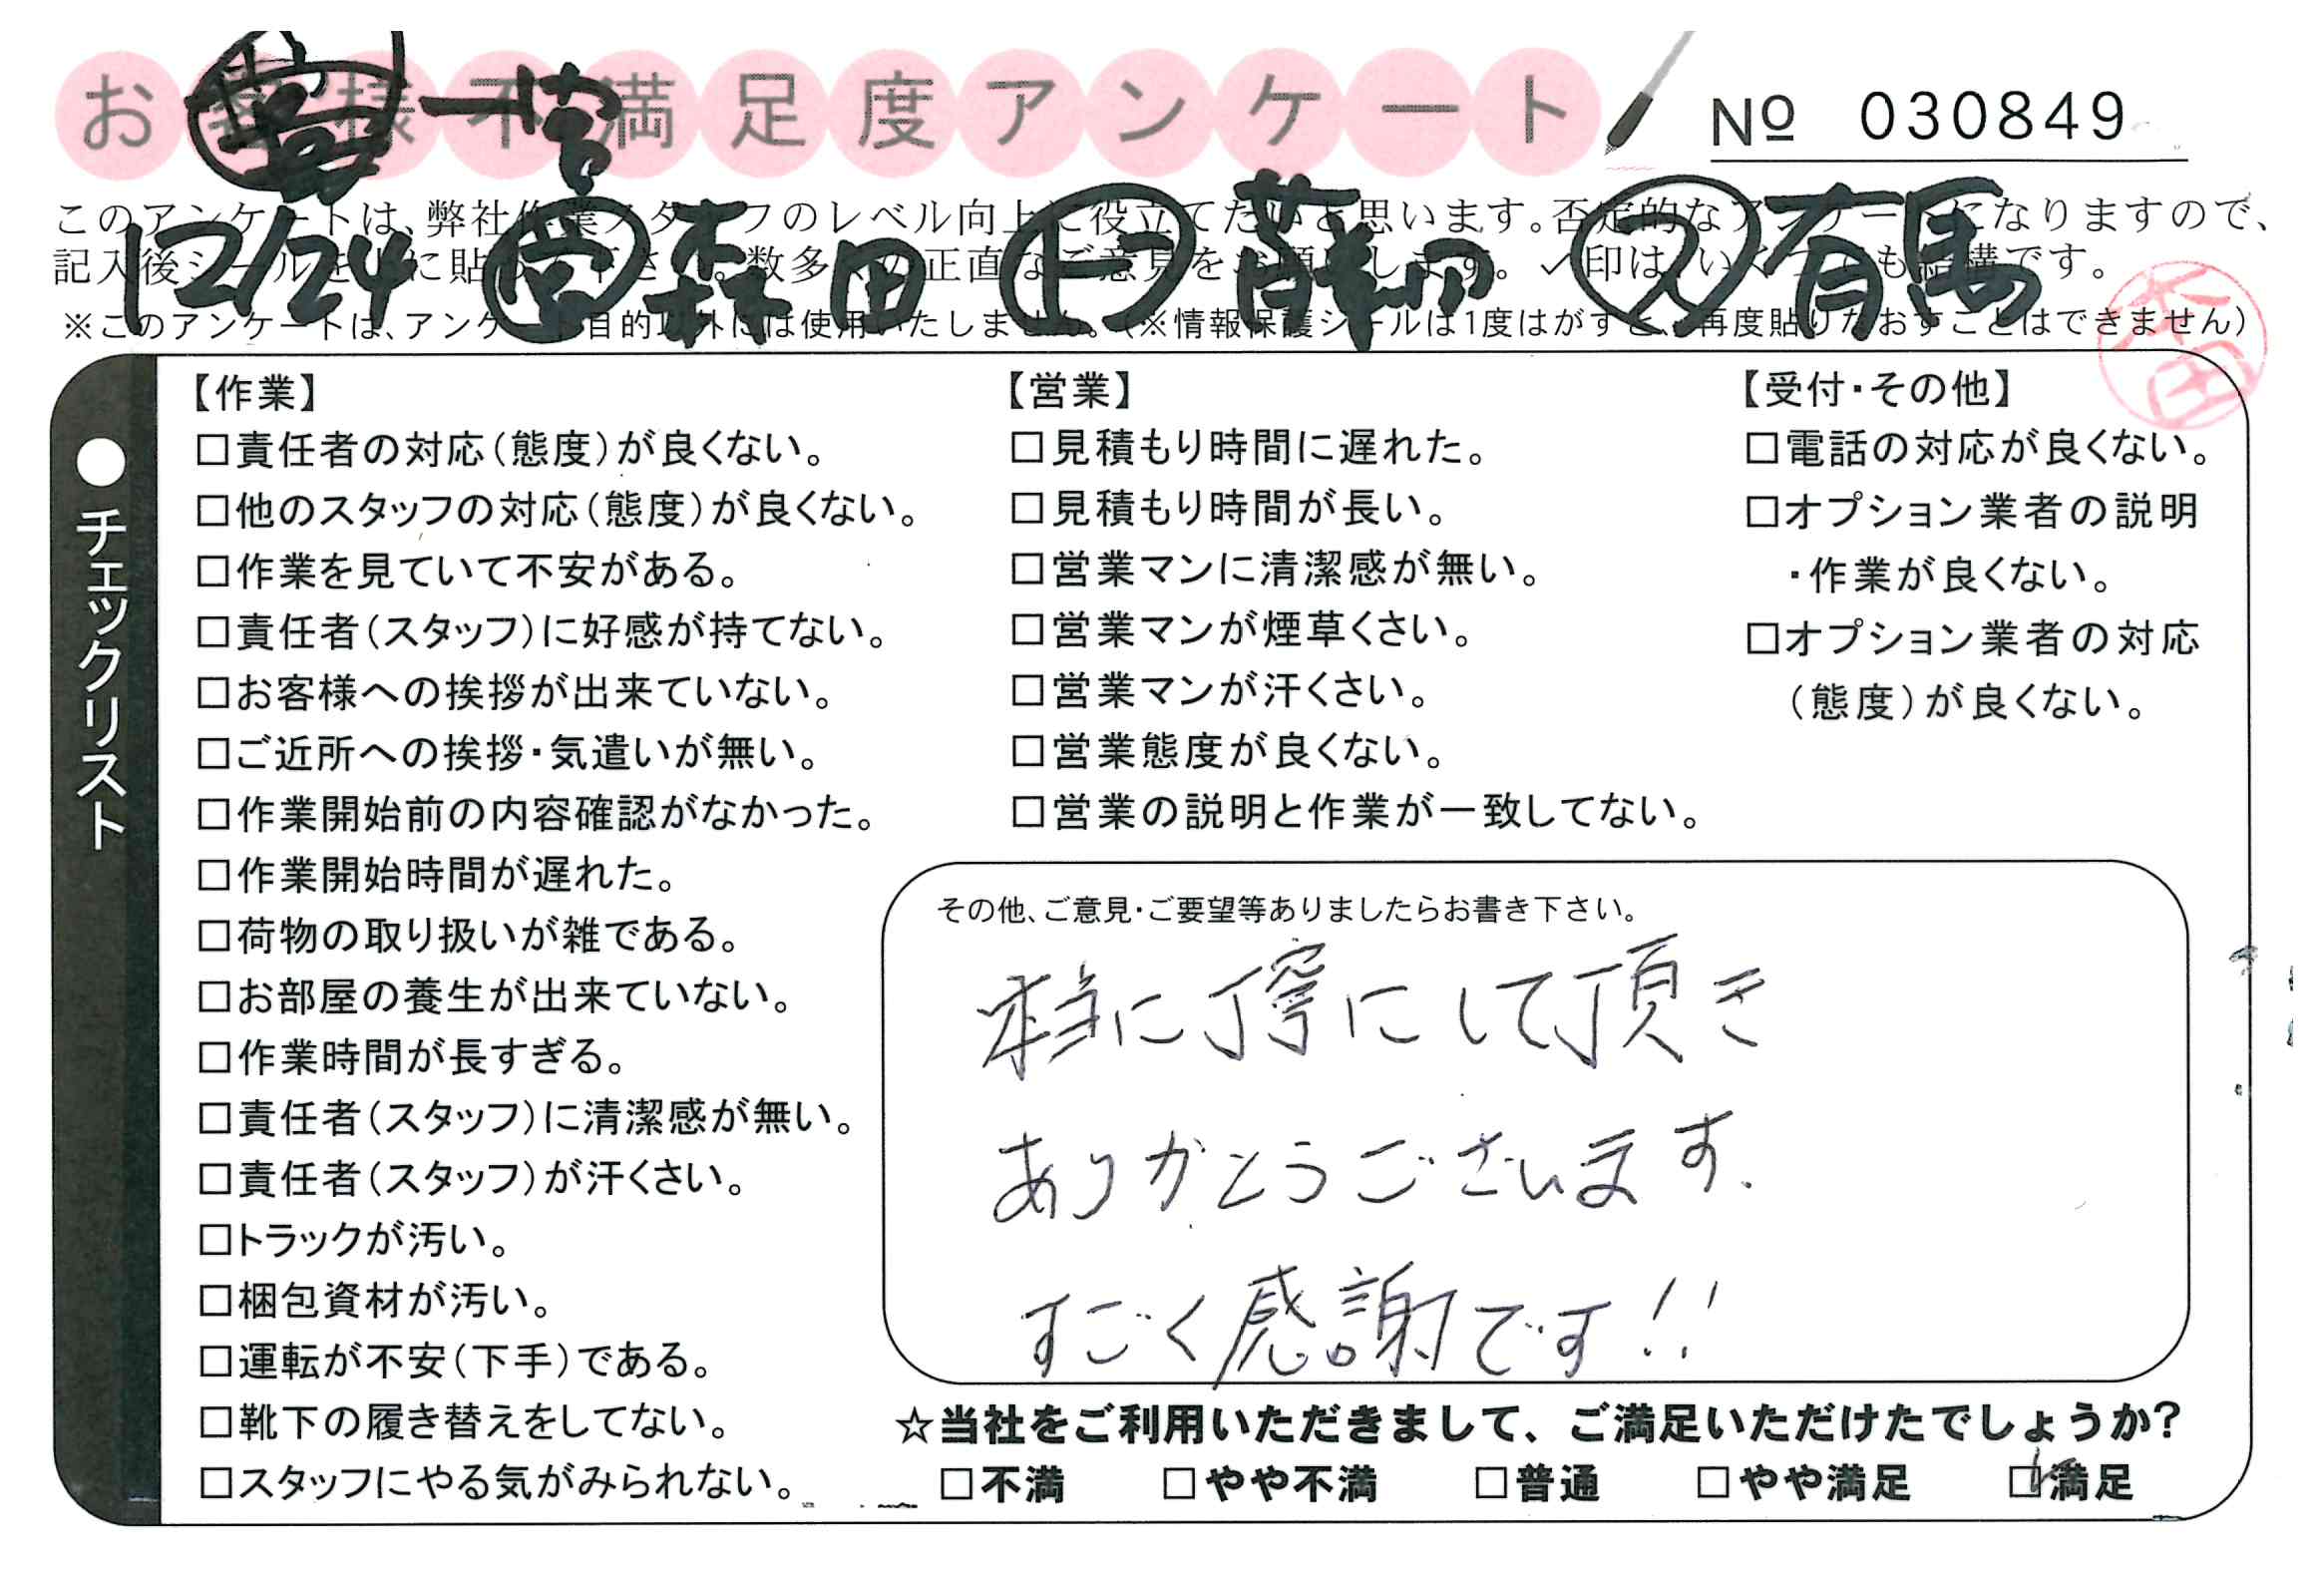 お客様不満足度アンケート
№ 030849
一宮
このアンケートは、弊社作業スタッフのレベル向上に役立てたいと思います。否定的なアンケートになりますので、
記入後シールを上に貼って下さい。数多くの正直なご意見をお願いします。✓印はいくつでも結構です。
12/24 営 森田 ド 薛田 ス 有馬
※このアンケートは、アンケート目的以外には使用いたしません。（※情報保護シールは1度はがすと、再度貼りなおすことはできません）
●チェックリスト
【作業】
□責任者の対応（態度）が良くない。
□他のスタッフの対応（態度）が良くない。
□作業を見ていて不安がある。
□責任者（スタッフ）に好感が持てない。
□お客様への挨拶が出来ていない。
□ご近所への挨拶・気遣いが無い。
□作業開始前の内容確認がなかった。
□作業開始時間が遅れた。
□荷物の取り扱いが雑である。
□お部屋の養生が出来ていない。
□作業時間が長すぎる。
□責任者（スタッフ）に清潔感が無い。
□責任者（スタッフ）が汗くさい。
□トラックが汚い。
□梱包資材が汚い。
□運転が不安（下手）である。
□靴下の履き替えをしてない。
□スタッフにやる気がみられない。
【営業】
□見積もり時間に遅れた。
□見積もり時間が長い。
□営業マンに清潔感が無い。
□営業マンが煙草くさい。
□営業マンが汗くさい。
□営業態度が良くない。
□営業の説明と作業が一致してない。
【受付・その他】
□電話の対応が良くない。
□オプション業者の説明
・作業が良くない。
□オプション業者の対応
（態度）が良くない。
その他、ご意見・ご要望等ありましたらお書き下さい。
本当に丁寧にして頂き
ありがとうございます.
すごく感謝です!!
☆当社をご利用いただきまして、ご満足いただけたでしょうか？
□不満 □やや不満 □普通 □やや満足 ☑満足